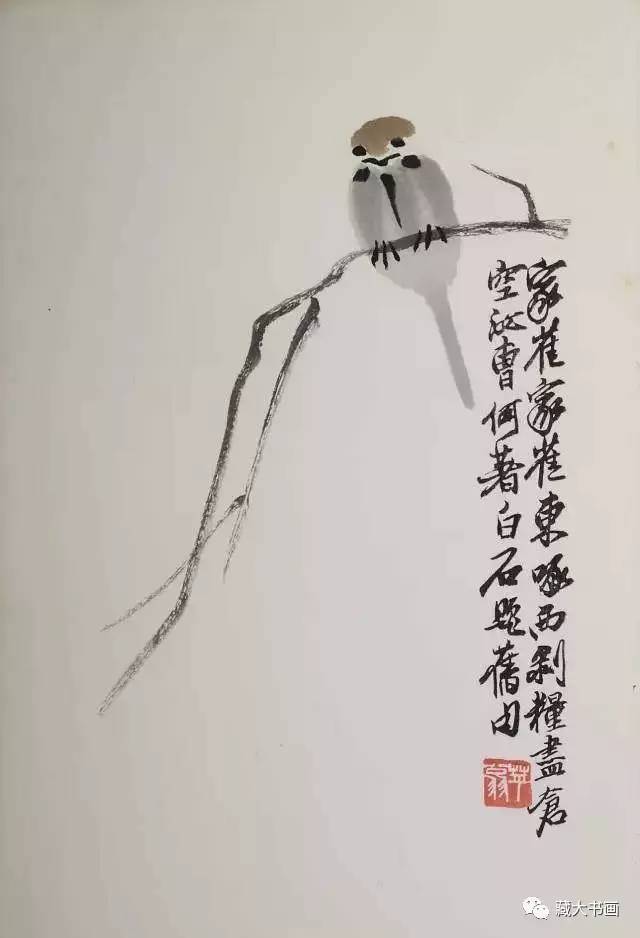 家雀家雀東啄西剝糧盡倉
空汝曹何著白石題舊句
苹翁
藏大书画